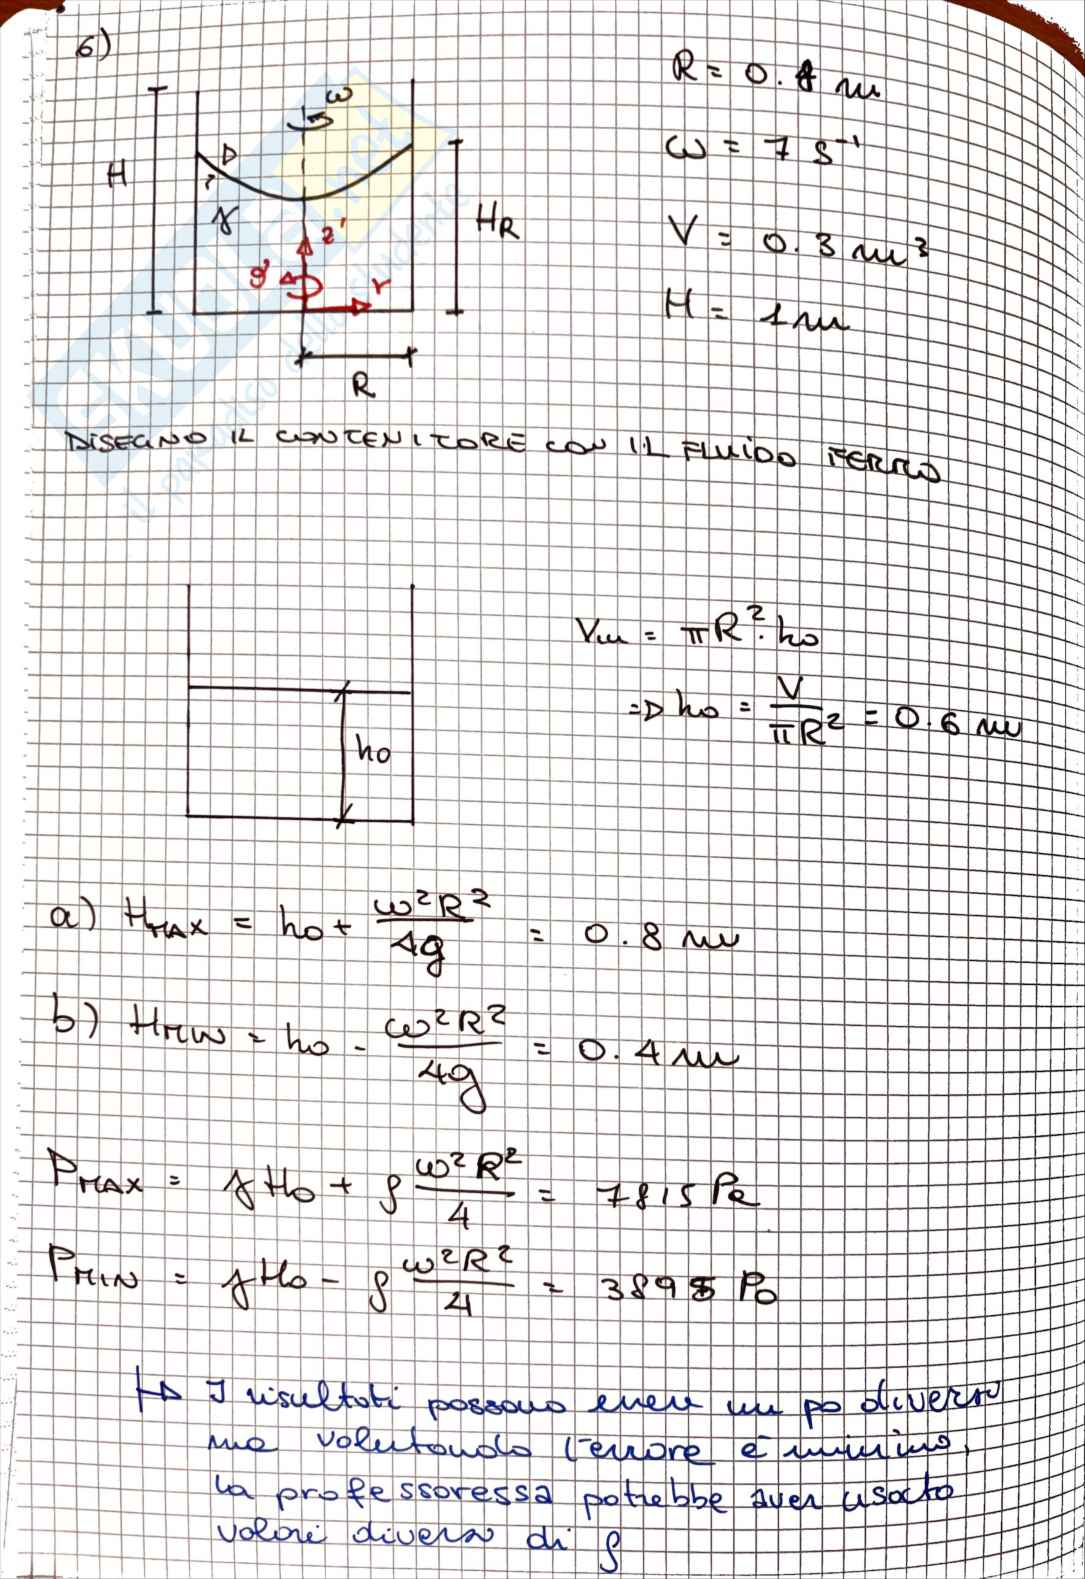 6)
R = 0.4 m
ω = 7 s⁻¹
V = 0.3 m³
H = 1 m
ω
H
γ
z'
θ
r
HR
R
DISEGNO IL CONTENITORE CON IL FLUIDO FERMO
Vm = πR²·ho
=D ho = V/πR² = 0.6 m
ho
a) HMAX = ho + ω²R²/4g = 0.8 m
b) HMIN = ho - ω²R²/4g = 0.4 m
PMAX = γHo + ρ ω²R²/4 = 7815 Pa
PMIN = γHo - ρ ω²R²/4 = 3895 Pa
I risultati possono essere un po diversi
ma valutando l'errore è minimo,
la professoressa potrebbe aver usato
valori diversi di ρ